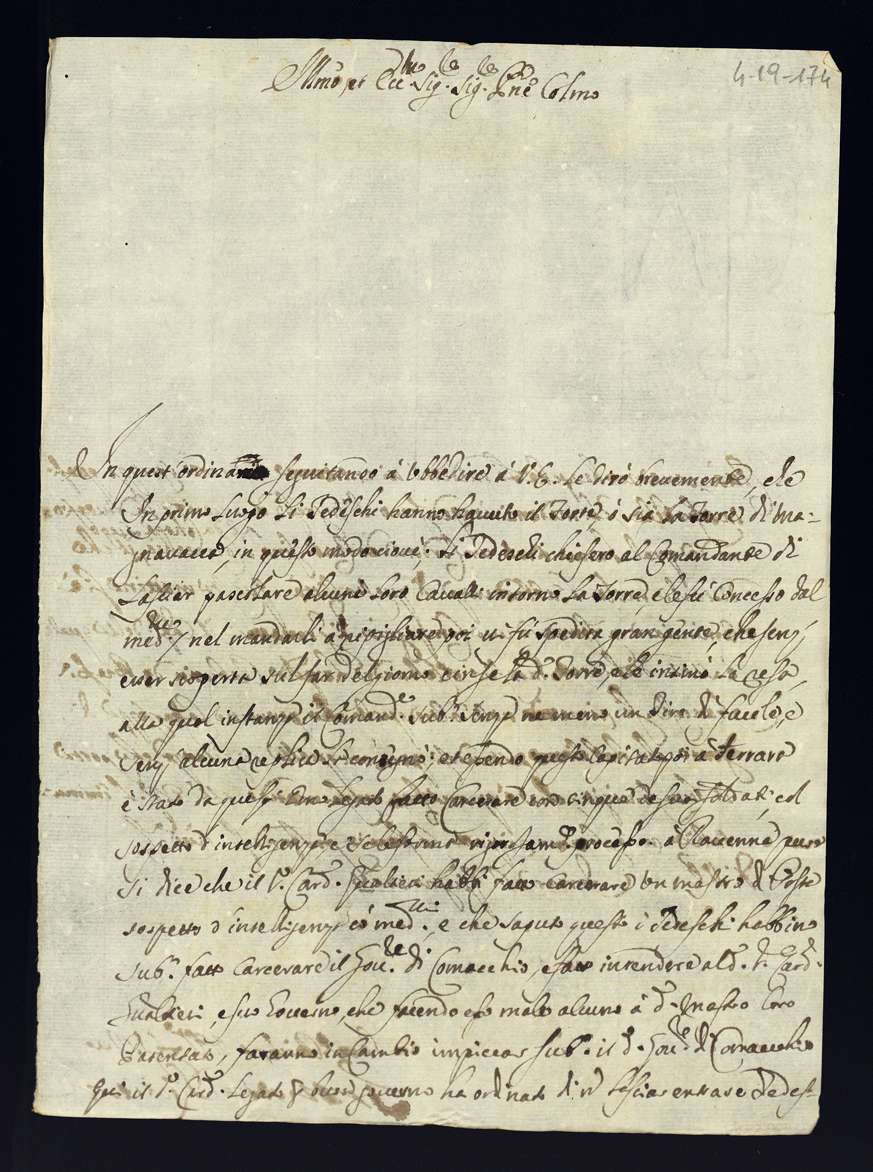 4-19-174
Illmo et Ecc.mo Sig.re Sig.re Pne Colmo
In quest'ordinario seguitando à Ubbedire à V.E. Le dirò brevemente, che
In primo Luogo Li Tedeschi hanno havuto il Forte ò sia La Torre di Ma-
gnavacca, in questo modo cioué; Li Tedeschi chiesero al Comandante di
Lasciar pascolare alcuni Loro Cavalli intorno La Torre, il che fù Concesso dal
med.mo, nel mandarli à ripigliare poi vi fù spedita gran gente, che senz'
esser scoperta sul far del giorno cinse la d.a Torre, che intimò La resa,
alla qual instanza il Comand.e sub.o senza ne meno un tiro di fucile, e
senz'alcuna replica Li consegnò; et essendo questo Capitato poi à Ferrara
è stato da questo Em.o Legato fatto Carcerare con cinque de suoi soldati, col
sospetto d'intelligenza, e rigorosam.e processo. à Ravenna pure
Si dice che il S.r Card. Gualtieri habbi fatto carcerare un mastro di Posta
sospetto d'intelligenza có med.mi, e che saputo questo i Tedeschi habbino
Sub.o fatto Carcerare il Gou.re di Comacchio, e fatto intendere al d.o S.r Card.
Gualtieri, e suo Governo, che facendo esso male alcuno à d.o Mastro Loro
faranno in Cambio impiccar sub.o il d.o Gou.re di Comacchio
Qui il S.r Card. Legato governo ha ordinato di nò Lasciar entrare Tedes-